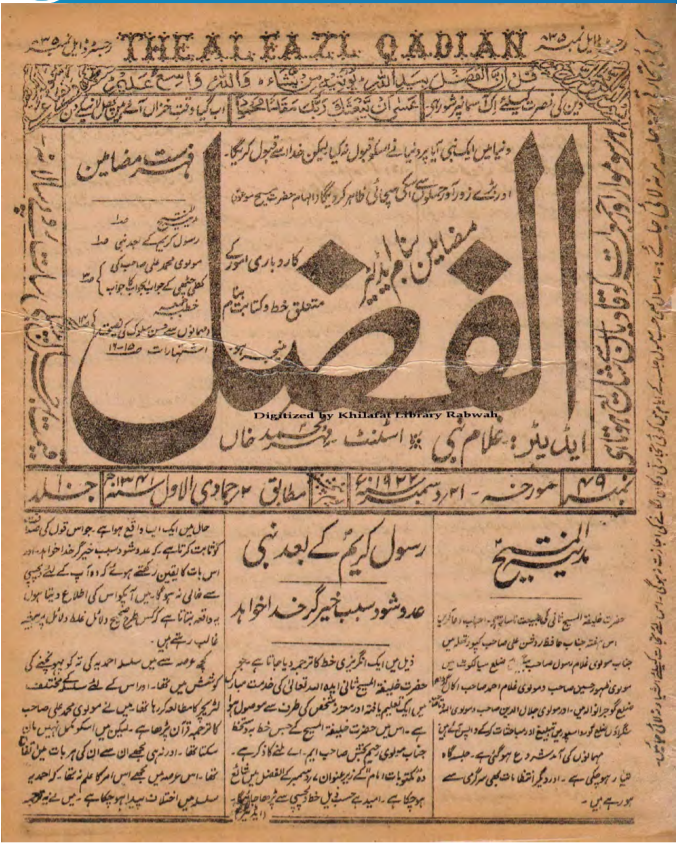 رجسٹرڈ ایل نمبر ۸۳۵
THE ALFAZL QADIAN
رجسٹرڈ ایل نمبر ۸۳۵
قل ان الفضل بيد الله يؤتيه من يشاء والله واسع عليم
دین کی نصرت کیلئے اک آسماں پر شور ہے
عسى ان يبعثك ربك مقاما محمودا
اب گیا وقت خزاں آئے ہیں پھل لانے کے دن
دنیا میں ایک نبی آیا پر دنیا نے اسکو قبول نہ کیا لیکن خدا اسے قبول کریگا۔
اور بڑے زور آور حملوں سے اسکی سچائی ظاہر کر دیگا (الہام حضرت مسیح موعودؑ)
فہرست مضامین
مدینۃ المسیح ص۱
رسول کریم کے بعد نبی ص۱
مولوی محمد علی صاحب کی
خطبہ جمعہ
(مہمانوں سے حسن سلوک کی نصیحت)
اشتہارات
مضامین بنام ایڈیٹر
کاروباری امور کے
متعلق خط و کتابت بنام
منیجر ہو
الفضل
Digitized by Khilafat Library Rabwah
ایڈیٹر:- غلام نبی اسسٹنٹ - مہر محمد خاں
نمبر ۴۹
مورخہ - ۲۱ دسمبر ۱۹۲۲ء
مطابق ۲ جمادی الاول ۱۳۴۱ھ
جلد ۱۰
مدینۃ المسیح
حضرت خلیفۃ المسیح ثانی کی طبیعت
اس ہفتہ جناب حافظ روشن علی صاحب کپورتھلہ میں
جناب مولوی غلام رسول صاحب ضلع سیالکوٹ میں
مولوی ظہور حسین صاحب و مولوی غلام احمد صاحب
ضلع گوجرانوالہ میں۔ اور مولوی جلال الدین صاحب و مولوی
ضلع گورداسپور میں تبلیغ اور مباحثات کر کے واپس آئے ہیں
مہمانوں کی آمد شروع ہو گئی ہے۔ جلسہ گاہ
تیار ہو چکی ہے۔ اور دیگر انتظامات بھی سرگرمی سے
ہو رہے ہیں۔
رسول کریمؐ کے بعد نبی
عدو شود سبب خیر گر خدا خواہد
ذیل میں ایک انگریزی خط کا ترجمہ دیا جاتا ہے۔ جو
حضرت خلیفۃ المسیح ثانی ایدہ اللہ تعالیٰ کی خدمت مبارک
میں ایک تعلیم یافتہ اور معزز شخص کی طرف سے موصول ہوا
ہے۔ اس میں حضرت خلیفۃ المسیح کے جس خط بدستخط
جناب مولوی رحیم بخش صاحب ایم۔ اے نے کا ذکر ہے۔
وہ مکتوبات امام کے زیر عنوان ۷ دسمبر کے الفضل میں شائع
ہو چکا ہے۔ امید ہے حسب ذیل خط دلچسپی سے پڑھا جائیگا۔
(ایڈیٹر)
حال میں ایک ایسا واقع ہوا ہے۔ جو اس قول کی صداقت
کو ثابت کرتا ہے کہ عدو شود سبب خیر گر خدا خواہد۔ اور
اس بات کا یقین رکھتے ہوئے کہ وہ آپ کے لئے دلچسپی
سے خالی نہ ہوگا۔ میں آپکو اس کی اطلاع دیتا ہوں
یہ واقعہ بتاتا ہے کہ کس طرح صحیح دلائل غلط دلائل پر ہمیشہ
غالب رہتے ہیں۔
کچھ عرصہ سے میں سلسلہ احمدیہ کی تہ کو پہونچنے کی
کوشش میں تھا۔ اور اس کے لئے سلسلہ کے مختلف
لٹریچر کا مطالعہ کر رہا تھا۔ میں نے مولوی محمد علی صاحب
کا ترجمہ قرآن پڑھا ہے۔ لیکن میں اسکو مکمل نہیں مان
سکتا تھا۔ اور نہ ہی مجھے ان سے ان کی ہر بات میں اتفاق
تھا۔ اس عرصہ میں مجھے اس امر کا علم نہ تھا۔ کہ احمدیہ
سلسلہ میں اختلاف پیدا ہو چکا ہے۔ میں نے